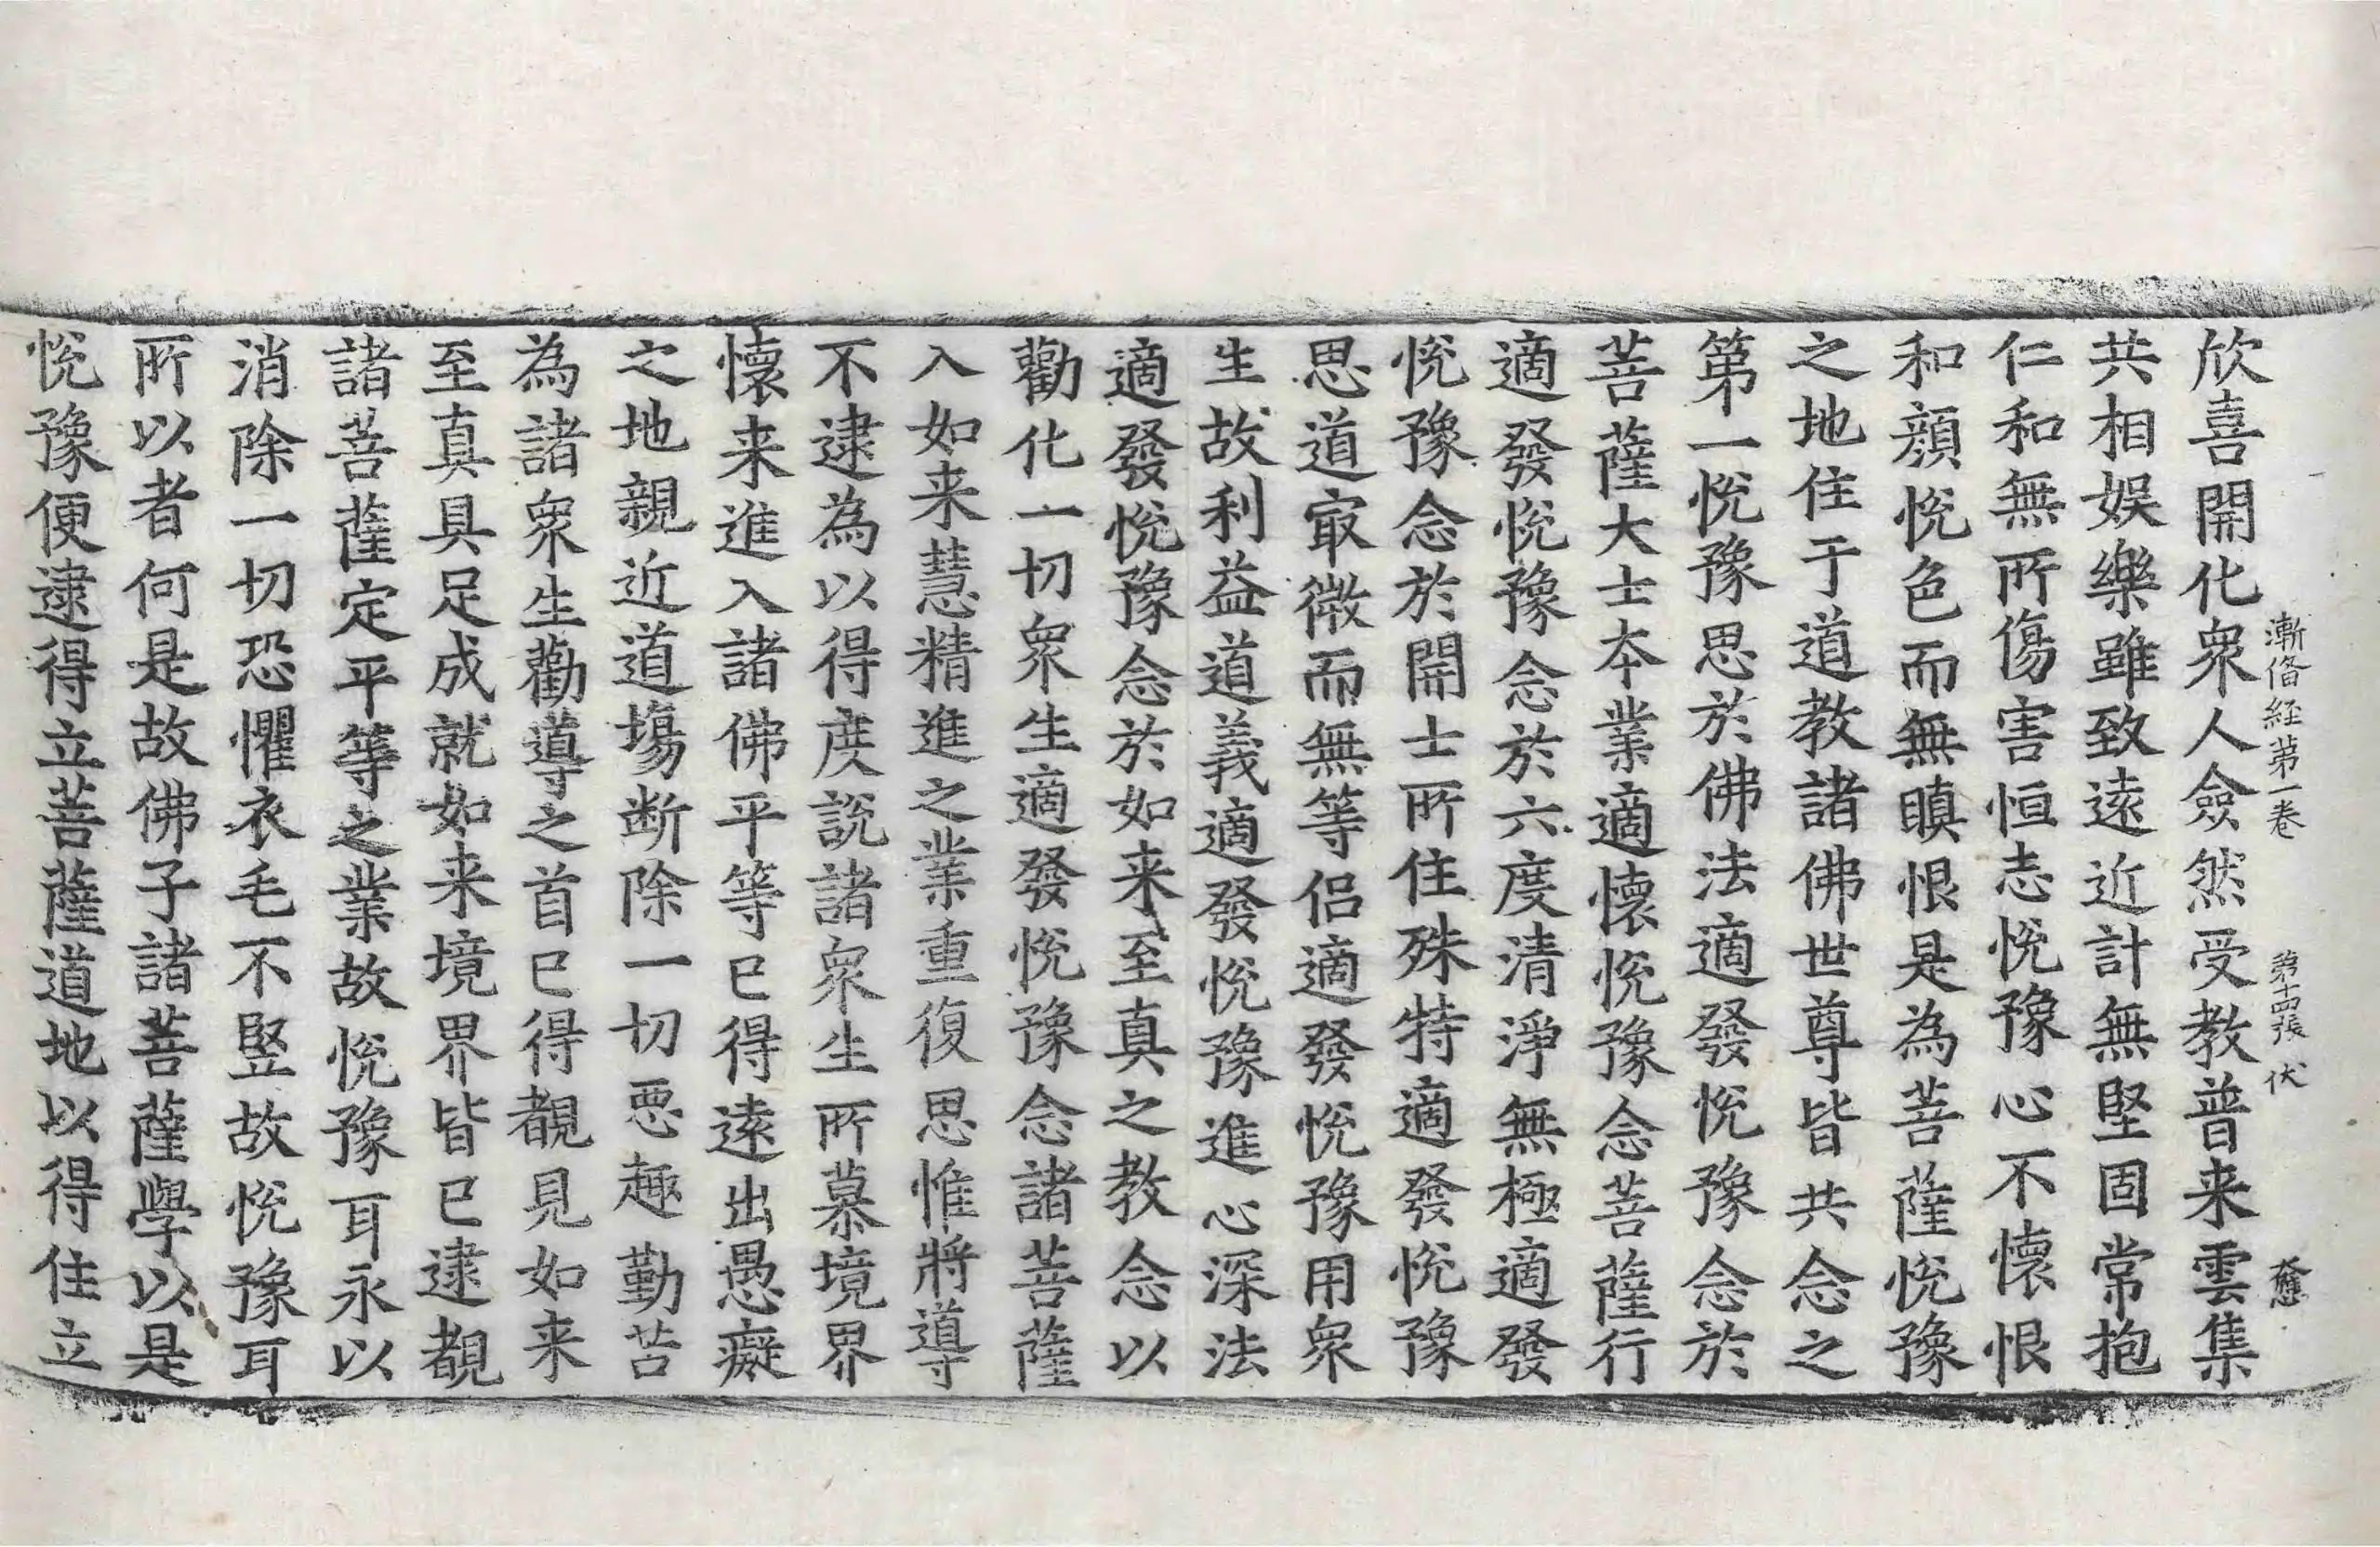 漸俻経第一卷 第十四張 伏
欣喜開化衆人僉然受教普来雲集
共相娱樂雖致遠近計無堅固常抱
仁和無所傷害恒志恱豫心不懷恨
和顔恱色而無瞋恨是為菩薩恱豫
之地住于道教諸佛世尊皆共念之
第一恱豫思於佛法適發恱豫念於
菩薩大士本業適懷恱豫念菩薩行
適發恱豫念於六度清淨無極適發
恱豫念於開士所住殊特適發恱豫
思道㝡微而無等侣適發恱豫用衆
生故利益道義適發恱豫進心深法
適發恱豫念於如来至真之教念以
勸化一切衆生適發恱豫念諸菩薩
入如来慧精進之業重復思惟將導
不逮為以得度說諸衆生所慕境界
懷来進入諸佛平等已得遠出愚癡
之地親近道塲断除一切恶趣勤苦
為諸衆生勸導之首已得覩見如来
至真具足成就如来境界皆已逮覩
諸菩薩定平等之業故恱豫耳永以
消除一切恐懼衣毛不竪故恱豫耳
所以者何是故佛子諸菩薩學以是
恱豫便逮得立菩薩道地以得住立